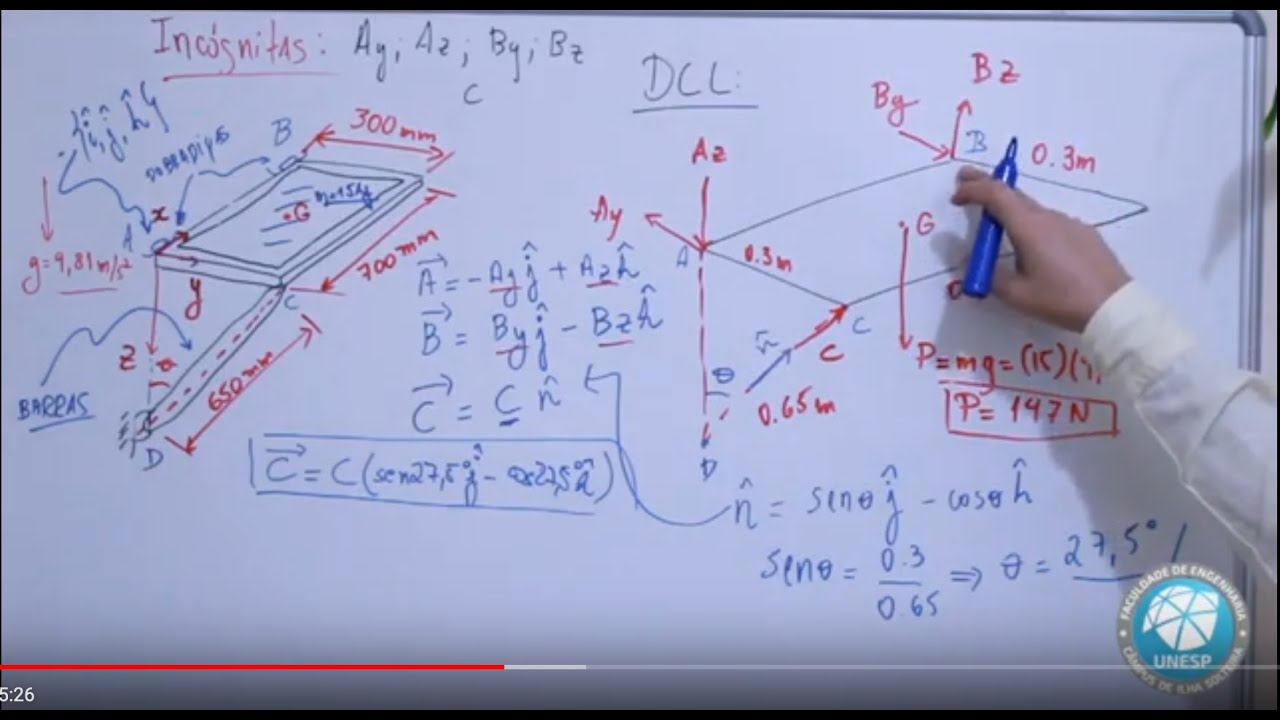 Incógnitas: Ay; Az; By; Bz
C
DCL:
{î, ĵ, k̂}
DOBRADIÇAS
B
300 mm
m=15kg
G
x
A
g=9,81m/s²
y
700 mm
C
z
θ
650 mm
BARRAS
D
A⃗ = -Ay ĵ + Az k̂
B⃗ = By ĵ - Bz k̂
C⃗ = C n̂
C⃗ = C (sen27,5° ĵ - cos27,5° k̂)
Bz
By
B
0.3m
Az
Ay
A
0.3m
G
C
n̂
C
θ
0.65m
D
P=mg=(15)(9,
P= 147N
n̂ = senθ ĵ - cosθ k̂
senθ = 0.3
0.65
⇒ θ = 27,5°
FACULDADE DE ENGENHARIA
UNESP
CÂMPUS DE ILHA SOLTEIRA
5:26